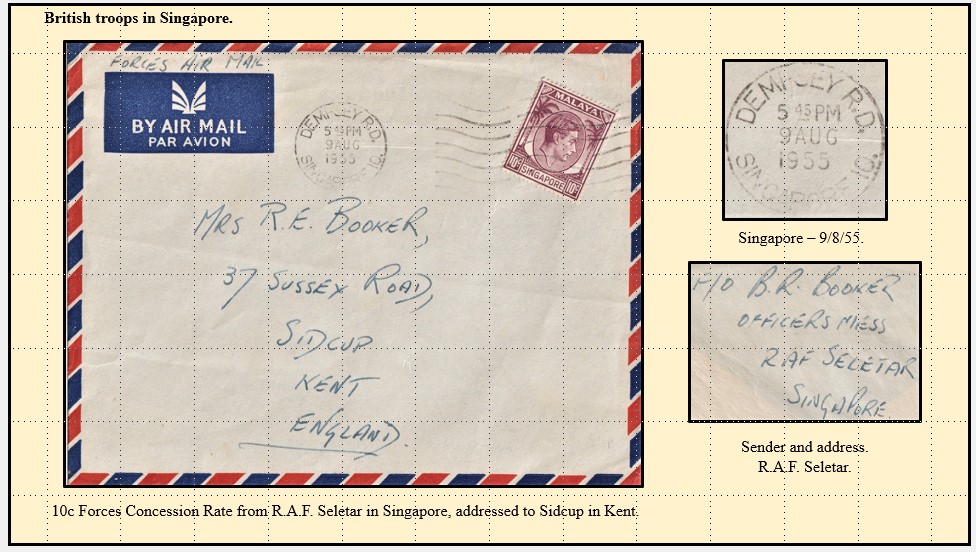 British troops in Singapore.
FORCES AIR MAIL
BY AIR MAIL
PAR AVION
DEMPSEY RD.
5 45 PM
9 AUG
1955
SINGAPORE 10.
MALAYA
10c SINGAPORE 10c
MRS R.E. BOOKER,
37 SUSSEX ROAD,
SIDCUP
KENT
ENGLAND.
DEMPSEY R.D.
5 45 PM
9 AUG
1955
SINGAPORE 10.
Singapore – 9/8/55.
F/O B.R. BOOKER
OFFICERS MESS
RAF SELETAR
SINGAPORE.
Sender and address.
R.A.F. Seletar.
10c Forces Concession Rate from R.A.F. Seletar in Singapore, addressed to Sidcup in Kent.